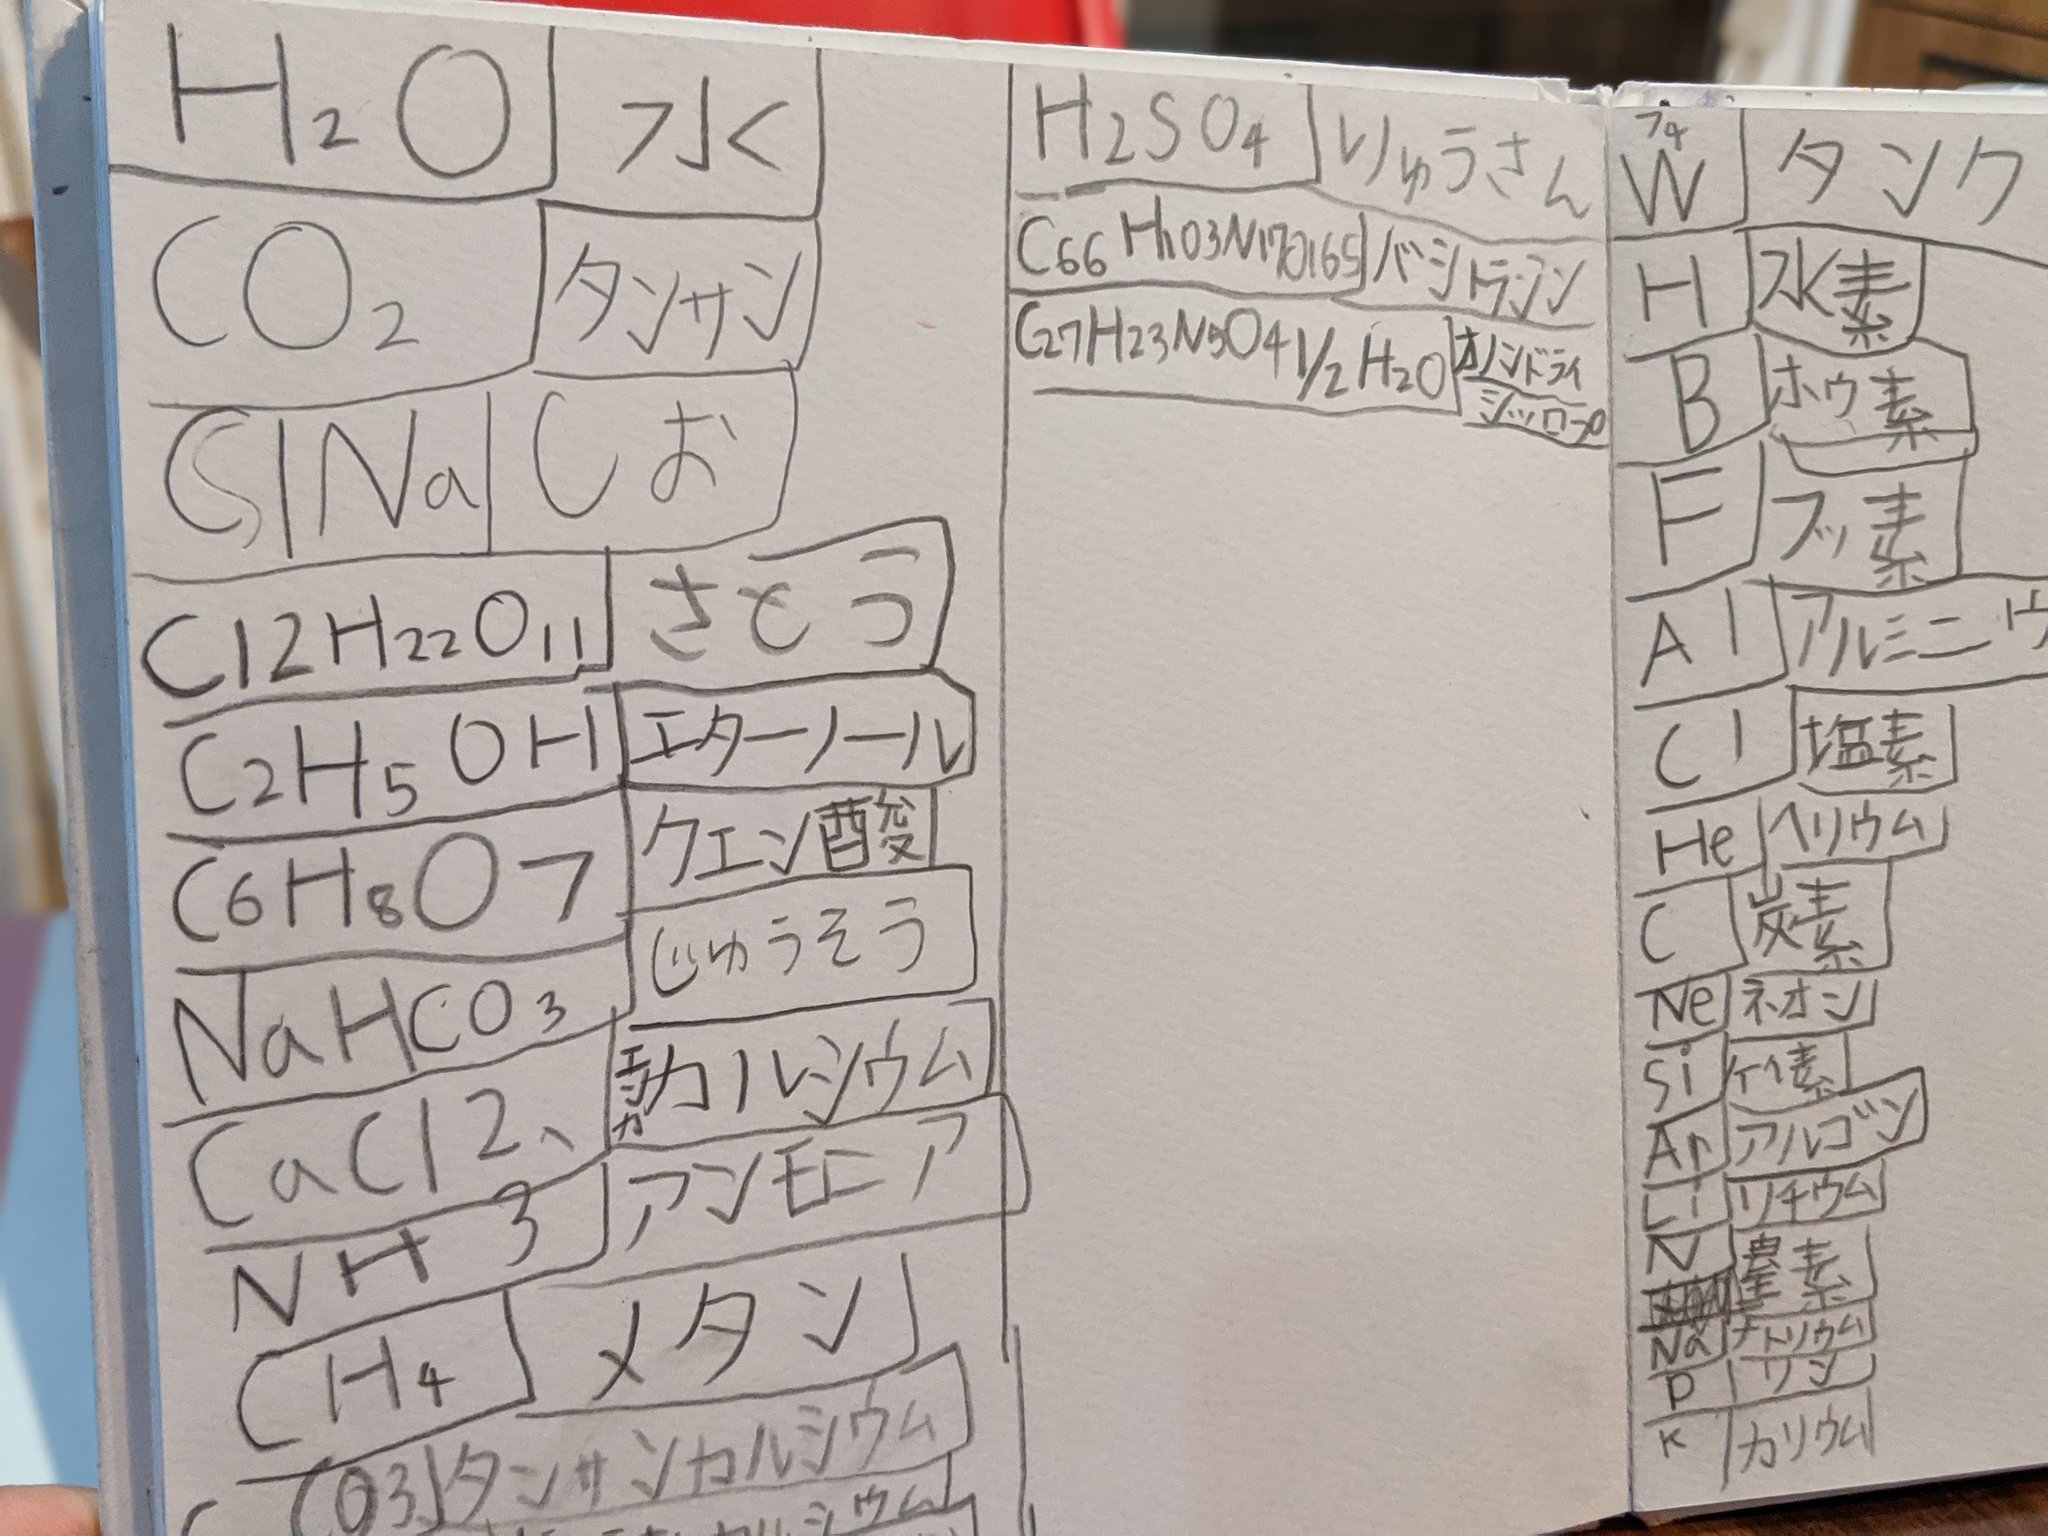 H2O 水
CO2 タンサン
ClNa しお
C12H22O11 さとう
C2H5OH エターノール
C6H8O7 クエン酸
NaHCO3 じゅうそう
CaCl2 エンカカルシウム
NH3 アンモニア
CH4 メタン
CO3 タンサンカルシウム
カルシウム
H2SO4 りゅうさん
C66H103N17O16S バシトラシン
C27H23N5O4 1/2 H2O オノンドライ
シロップ
74
W タンク
H 水素
B ホウ素
F フッ素
Al アルミニウ
Cl 塩素
He ヘリウム
C 炭素
Ne ネオン
Si ケイ素
Ar アルゴン
Li リチウム
N 素
Na ナトリウム
P リン
K カリウム